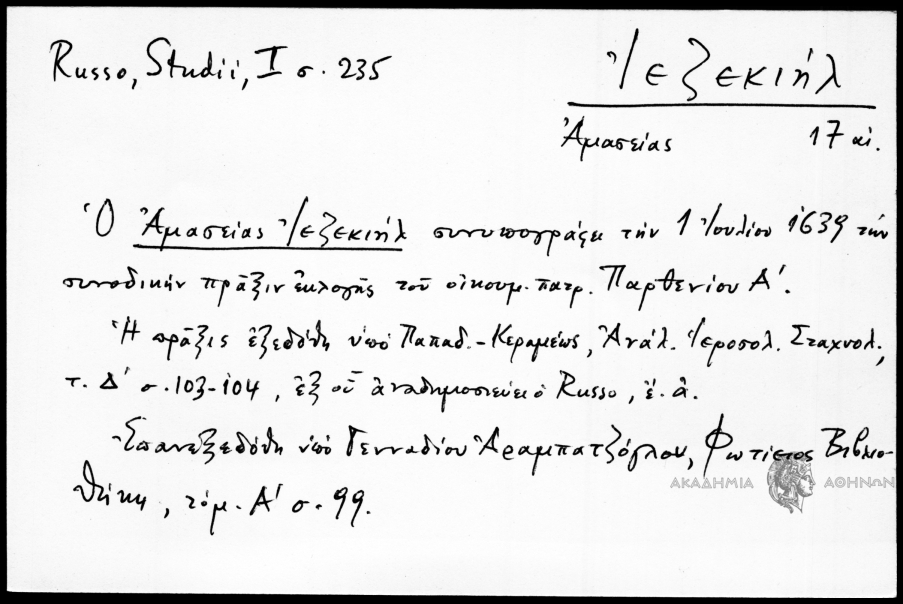 Russo, Studii, I σ. 235
Ἰεζεκιήλ
Ἀμασείας 17 αἰ.
Ὁ Ἀμασείας Ἰεζεκιήλ συνυπογράφει τὴν 1 Ἰουλίου 1639 τὴν
συνοδικὴν πρᾶξιν ἐκλογῆς τοῦ οἰκουμ. πατρ. Παρθενίου Α'.
Ἡ πρᾶξις ἐξεδόθη ὑπὸ Παπαδ.-Κεραμέως, Ἀνάλ. Ἱεροσολ. Σταχυολ.,
τ. Δ' σ. 103-104, ἐξ οὗ ἀναδημοσιεύει ὁ Russo, ἔ.ἀ.
Ἐπανεξεδόθη ὑπὸ Γενναδίου Ἀραμπατζόγλου, Φωτίειος Βιβλιο-
θήκη, τόμ. Α' σ. 99.
ΑΚΑΔΗΜΙΑ ΑΘΗΝΩΝ